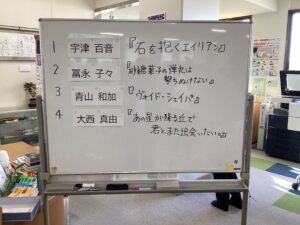 1 宇津 百音 『石を抱くエイリアン』
2 冨永 子々 『砂糖菓子の弾丸は
撃ちぬけない』
3 青山 和加 『ヴォイド・シェイパ』
4 大西 真由 『あの星が降る丘で
君とまた出会いたい。』